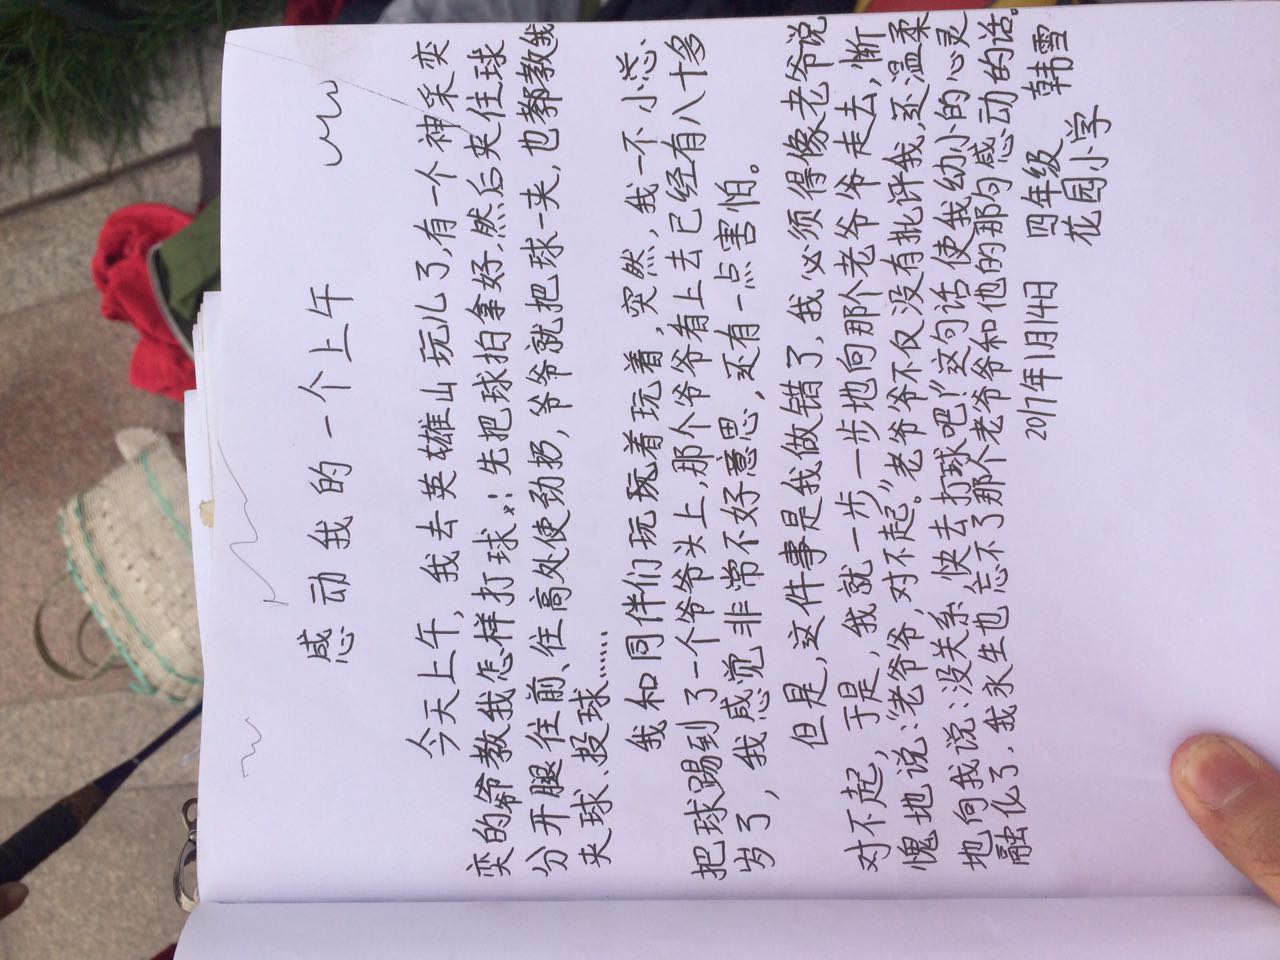 感动我的一个上午
今天上午，我去英雄山玩儿了，有一个神采奕
奕的爷爷教我怎样打球：先把球拍拿好，然后夹住球
分开腿往前、往高处使劲扔，爷爷就把球一夹，也教我
夹球、投球……
我和同伴们玩着玩着，突然，我一不小心
把球踢到了一个爷爷头上，那个爷爷看上去已经有八十多
岁了，我感觉非常不好意思，还有一点害怕。
但是，这件事是我做错了，我必须得像老爷爷说
对不起，于是，我就一步一步地向那个老爷爷走去，惭
愧地说：“老爷爷，对不起。”老爷爷不仅没有批评我，还温柔
地向我说：没关系，快去打球吧！”这句话使我幼小的心灵
融化了，我永生也忘不了那个老爷爷和他的那句感动的话。
2017年1月14日 四年级 韩雪
花园小学